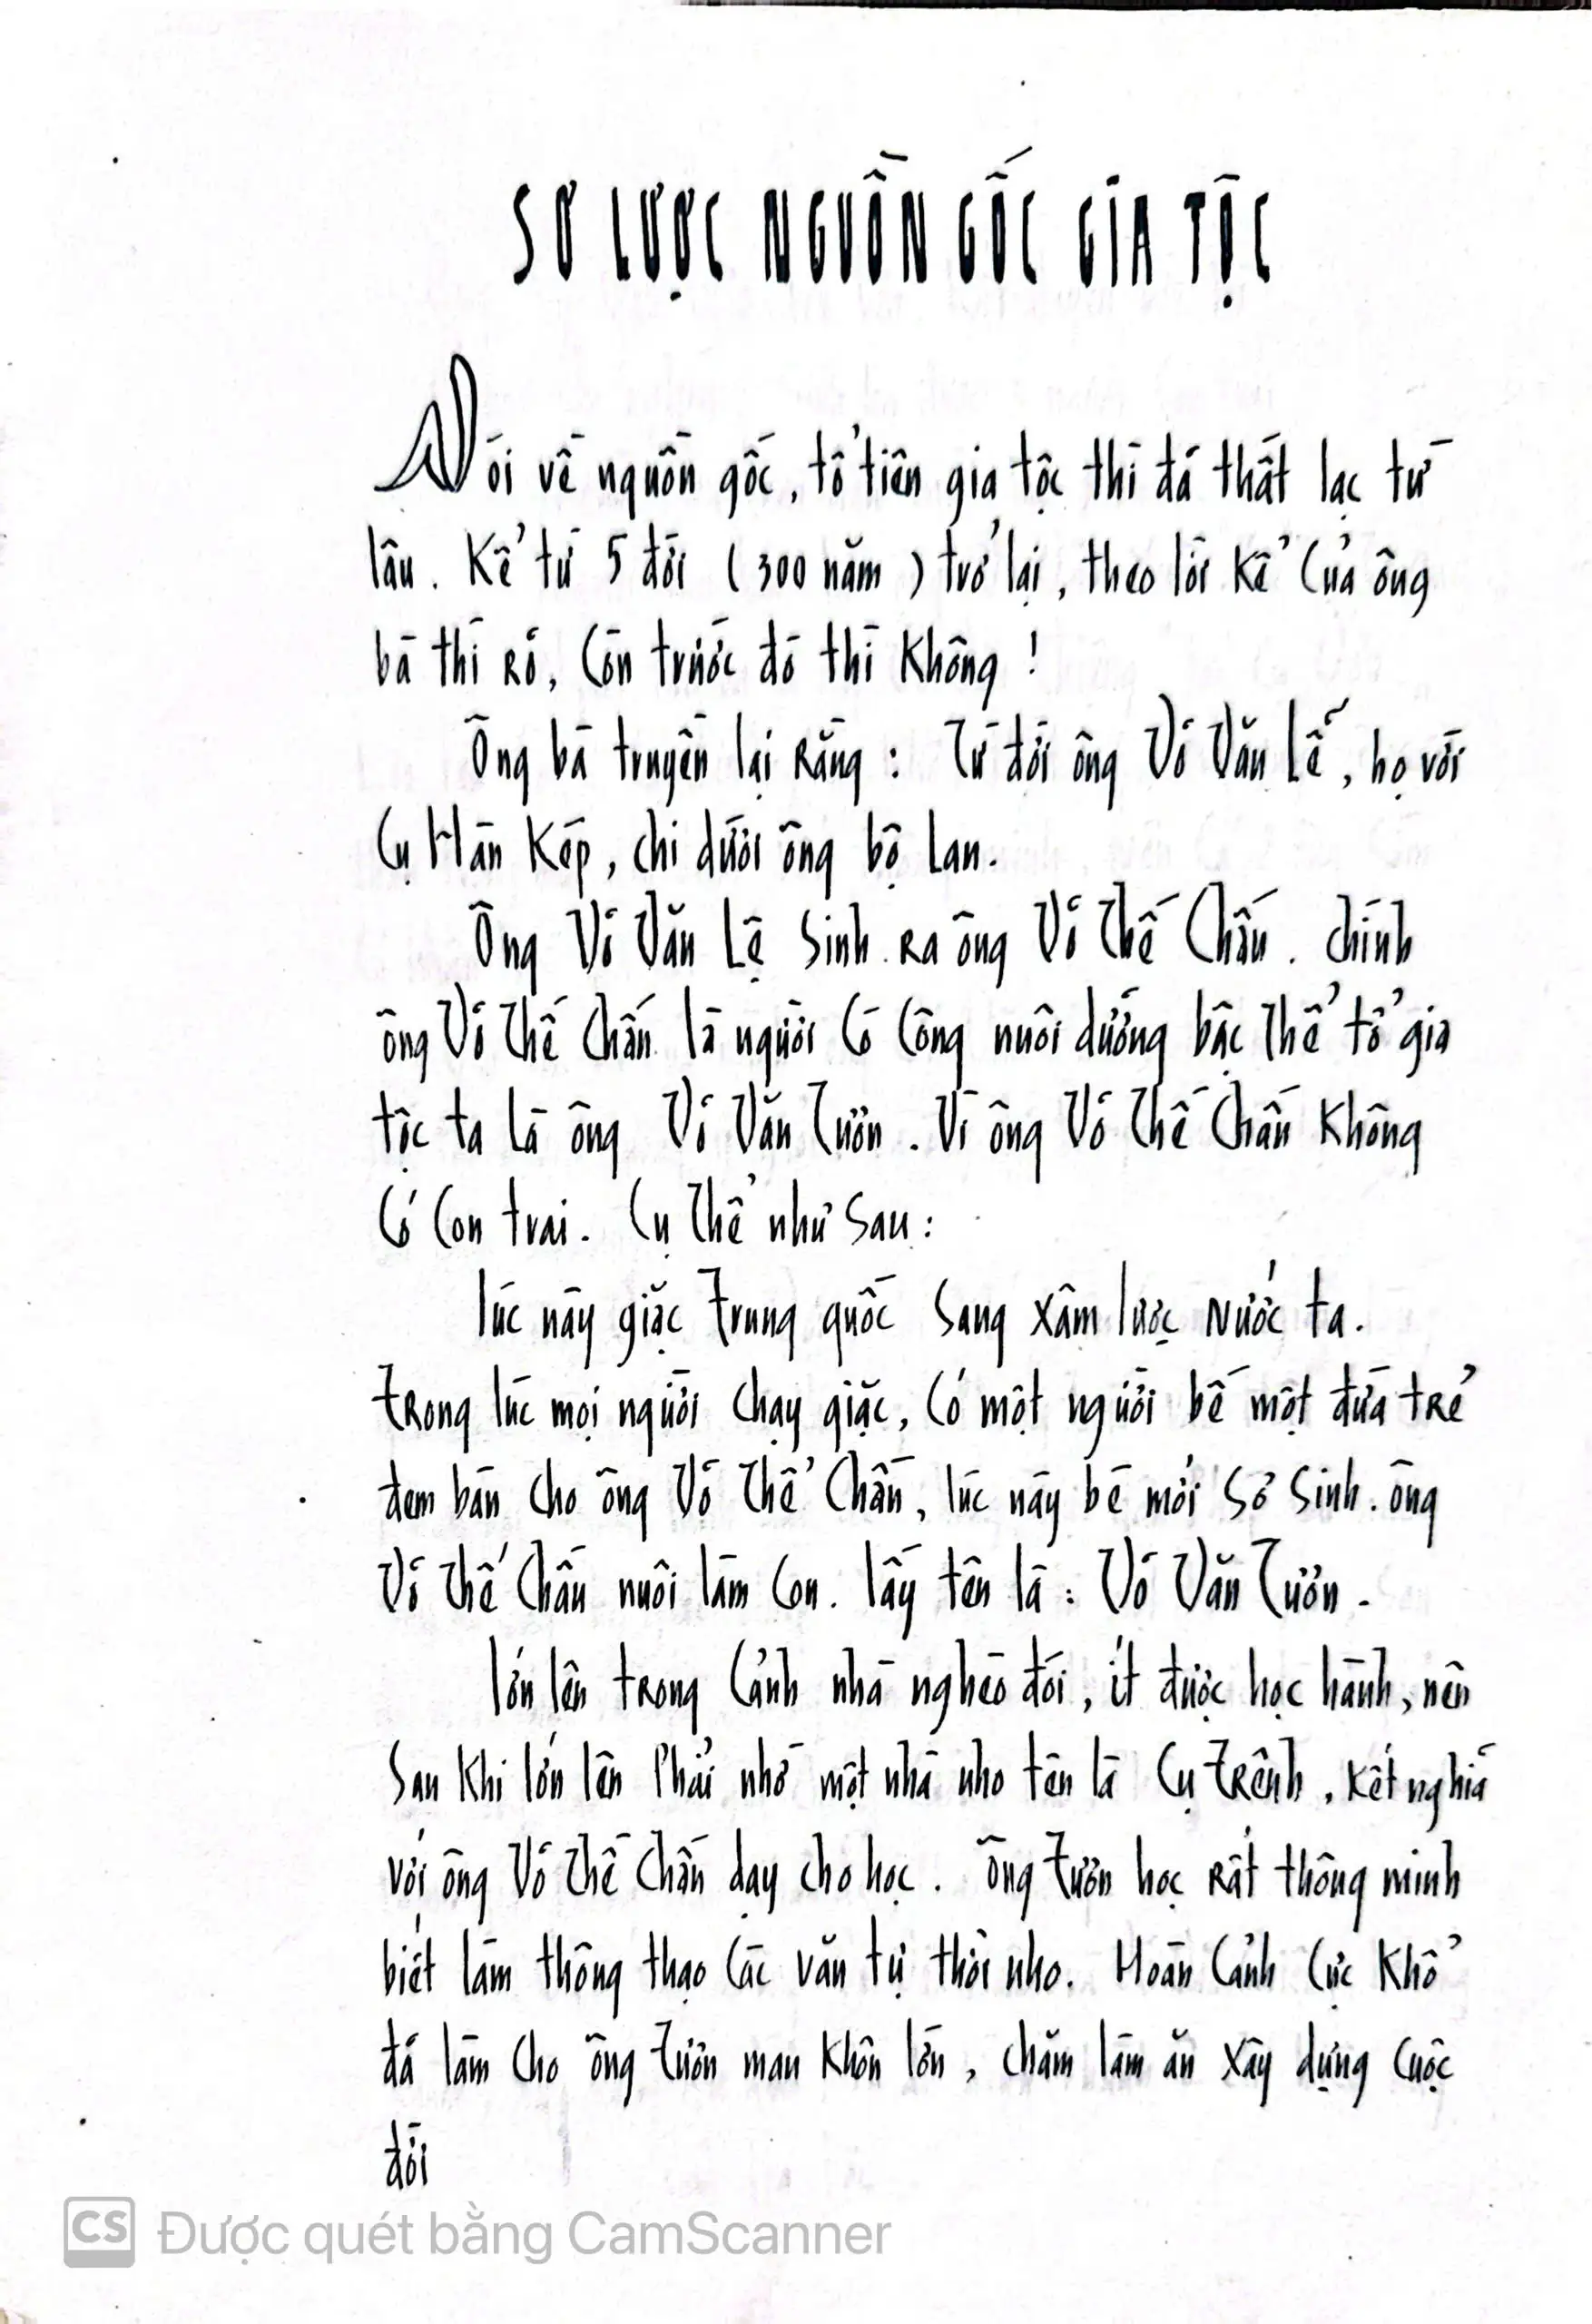 SƠ LƯỢC NGUỒN GỐC GIA TỘC
Nói về nguồn gốc, tổ tiên gia tộc thì đã thất lạc từ
lâu. Kể từ 5 đời (300 năm) trở lại, theo lời kể của ông
bà thì rõ, còn trước đó thì không!
Ông bà truyền lại rằng: Từ đời ông Võ Văn Lễ, họ với
Cụ Hàn Kép, chi dưới ông bộ Lan.
Ông Võ Văn Lệ sinh ra ông Võ Thế Chấn. Chính
ông Võ Thế Chấn là người có công nuôi dưỡng bậc thể tổ gia
tộc ta là ông Võ Văn Tườn. Vì ông Võ Thế Chấn không
có con trai. Cụ thể như sau:
lúc này giặc Trung quốc sang xâm lược nước ta.
Trong lúc mọi người chạy giặc, có một người bế một đứa trẻ
đem bán cho ông Võ Thể Chấn, lúc này bé mới sơ sinh. ông
Võ Thế Chấn nuôi làm con. lấy tên là: Võ Văn Tườn.
lớn lên trong cảnh nhà nghèo đói, ít được học hành, nên
sau khi lớn lên phải nhờ một nhà nho tên là Cụ Trênh, kết nghĩa
với ông Võ Thế Chấn dạy cho học. ông Tườn học rất thông minh
biết làm thông thạo các văn tự thời nho. Hoàn cảnh cực khổ
đã làm cho ông Tườn mau khôn lớn, chăm làm ăn xây dựng cuộc
đời
CS Được quét bằng CamScanner